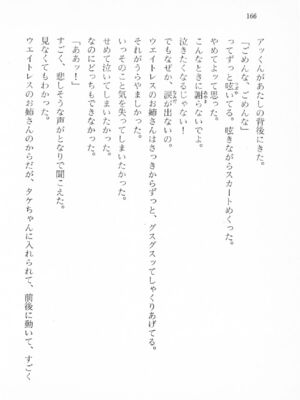 166
アッくんがあたしの背後にきた。
「ごめんな、ごめんな」
ってずっと呟いてる。呟きながらスカートめくった。
やめてよって思った。
こんなときに謝らないでよ。
泣きたくなるじゃない!
でもなぜか、涙が出ないの。
ウェイトレスのお姉さんはさっきからずっと、グスグスッてしゃくりあげてる。
それがうらやましかった。
いっそのこと気を失ってしまいたかった。
せめて泣いてしまいたかった。
なのにどっちもできなかった。
「ああッ!」
すごく、悲しそうな声がとなりで聞こえた。
見なくてもわかった。
ウェイトレスのお姉さんのからだが、タケちゃんに入れられて、前後に動いて、すごく